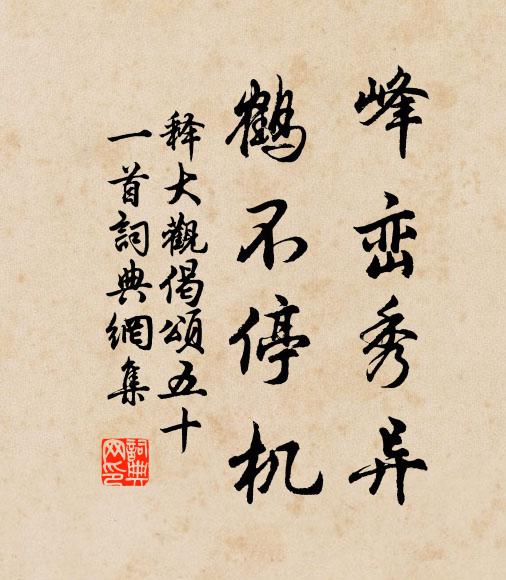 峰峦秀异
鹤不停机
释大觀偈頌五十
一首詞典網集
詞典网印